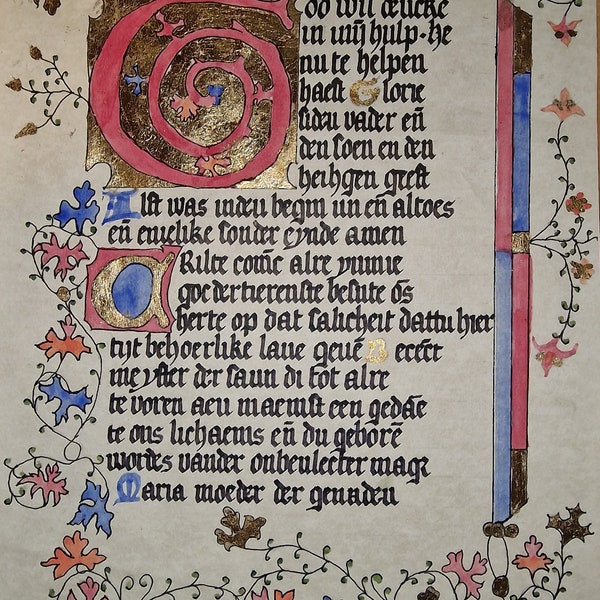 God wil dencke
in mijn hulp. He
nu te helpen
haest Glorie
siden vader en̄
den soen en den
heilygen geest
Alst was inden begin nu en̄ altoes
en̄ ewelike sonder eynde amen
Crilte comē alre
goedertierenste besute ōs
herte op dat salicheit dattu hier
tijt behoerlike laue geuē Becēct
meyster der saun di tot alre
te voren aen maemst een gedāe
te ons lichaems en̄ du geborē
wordes vander onbeulecter magt
Maria moeder der genaden